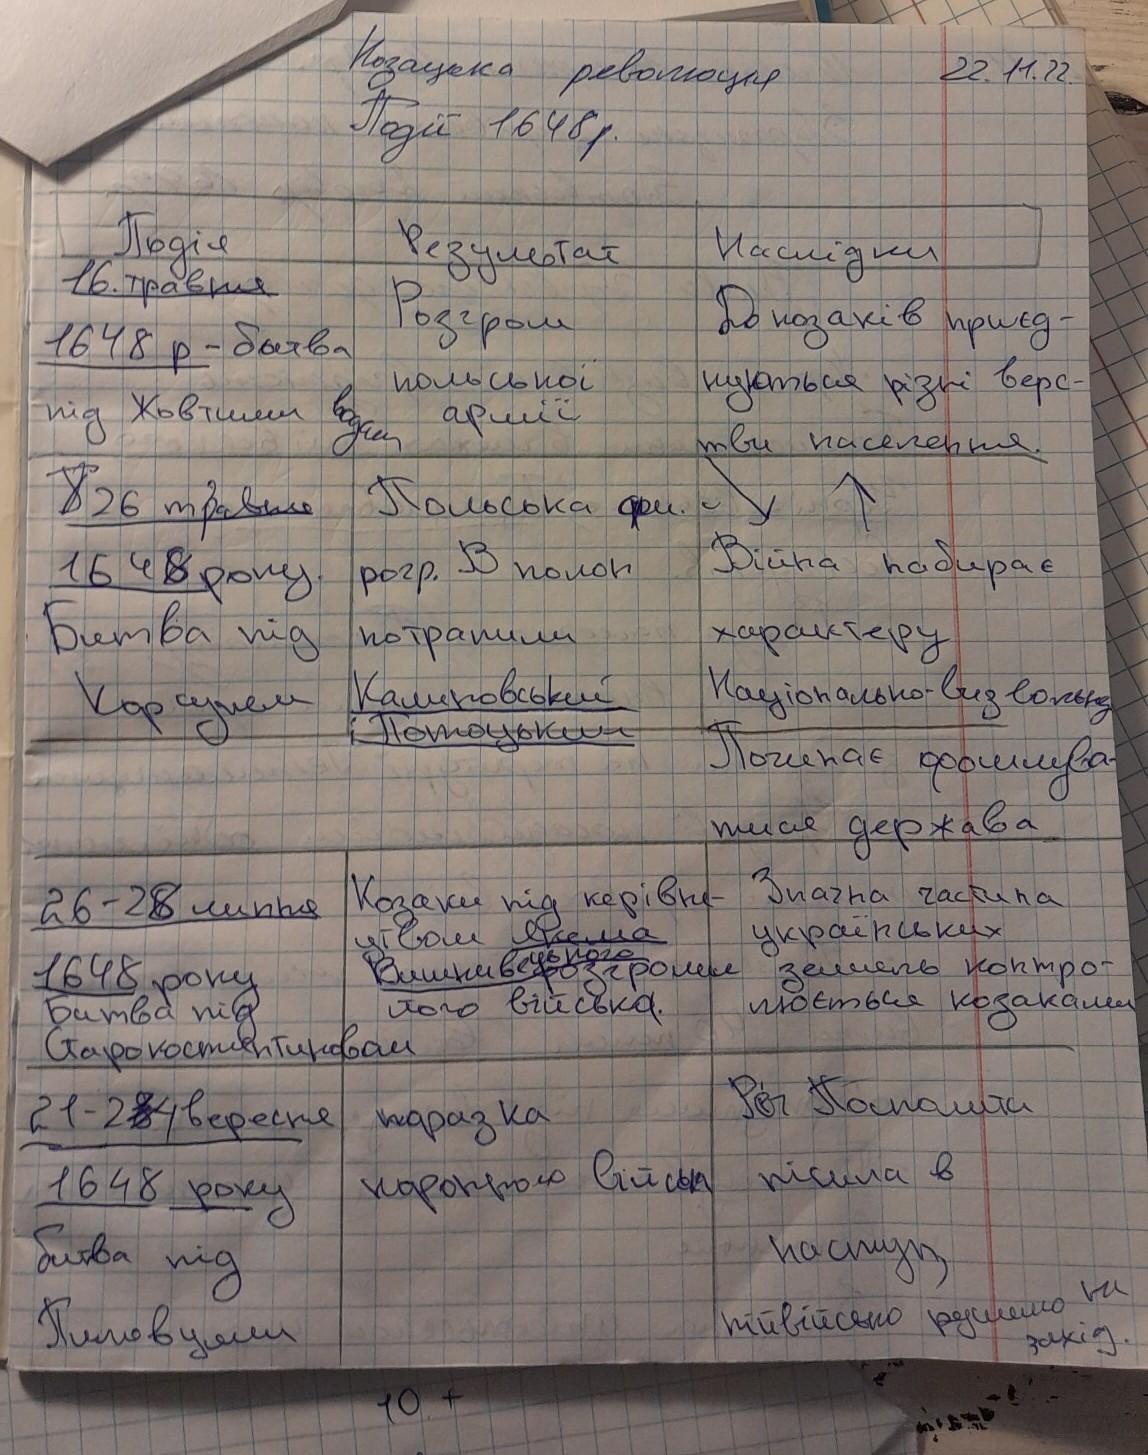 Козацька революція 22.11.22.
Події 1648р.
Подія Результат Наслідки
16. травня
1648 р - битва
під Жовтими водами
Розгром
польської
армії
До козаків приєд-
нуються різні верс-
тви населення.
26 травня
1648 року.
Битва під
Корсунем
Польська
розгр. В полон
потрапили
Калиновський
і Потоцький
Війна набирає
характеру
Національно-визвольну
Починає формува-
тися держава
26-28 липня
1648 року
Битва під
Старокостянтиновом
Козаки під керівни-
цтвом Якема
Вишнивецького розгромили
його війська.
Значна частина
українських
земель контро-
люється козаками
21-24 вересня
1648 року
битва під
Пилявцями
поразка
коронного військ
Річ Посполита
пішла в
наступ,
військо рушило на
захід.
10 +